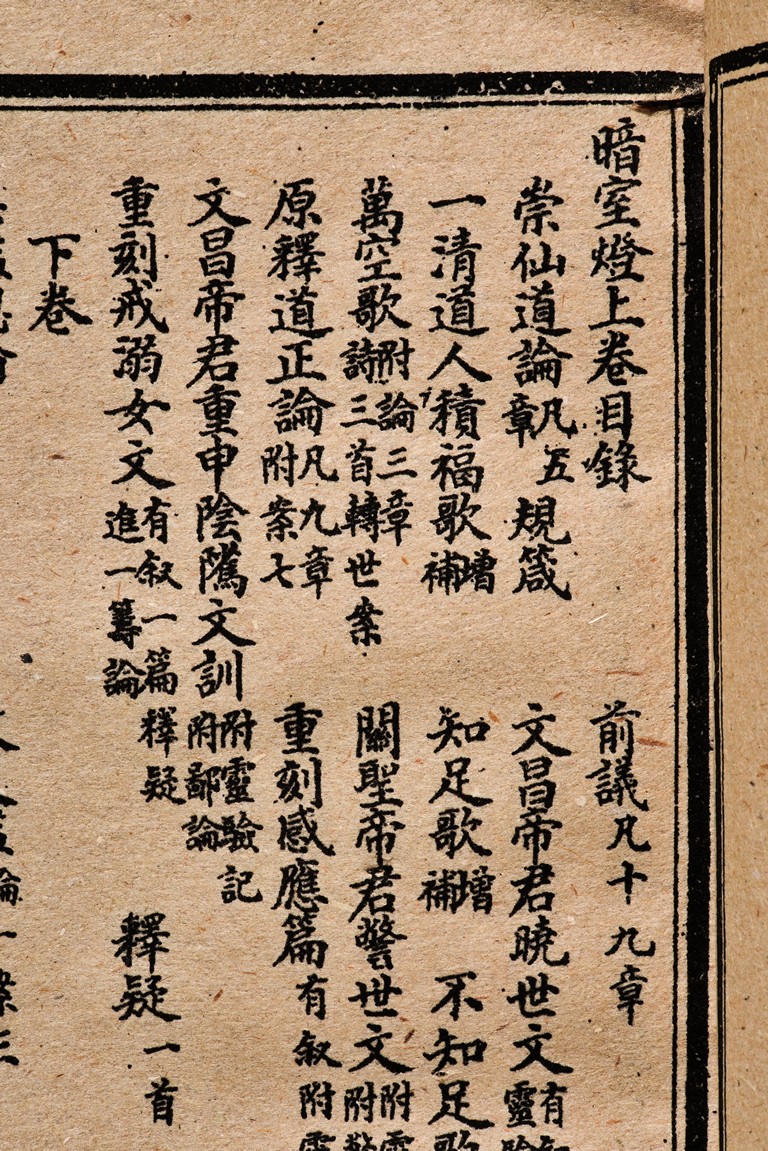 暗室燈上卷目錄　前議凡十九章
崇仙道論凡五章　規箴　文昌帝君曉世文有靈
一清道人積福歌增補　知足歌增補　不知足歌
萬空歌附論三章詩三首轉世案　關聖帝君警世文附附
原釋道正論凡九章附案七　重刻感應篇有叙附
文昌帝君重申陰隲文訓附靈驗記附鄙論
重刻戒溺女文有叙一篇釋疑進一籌論　釋疑一首
下卷